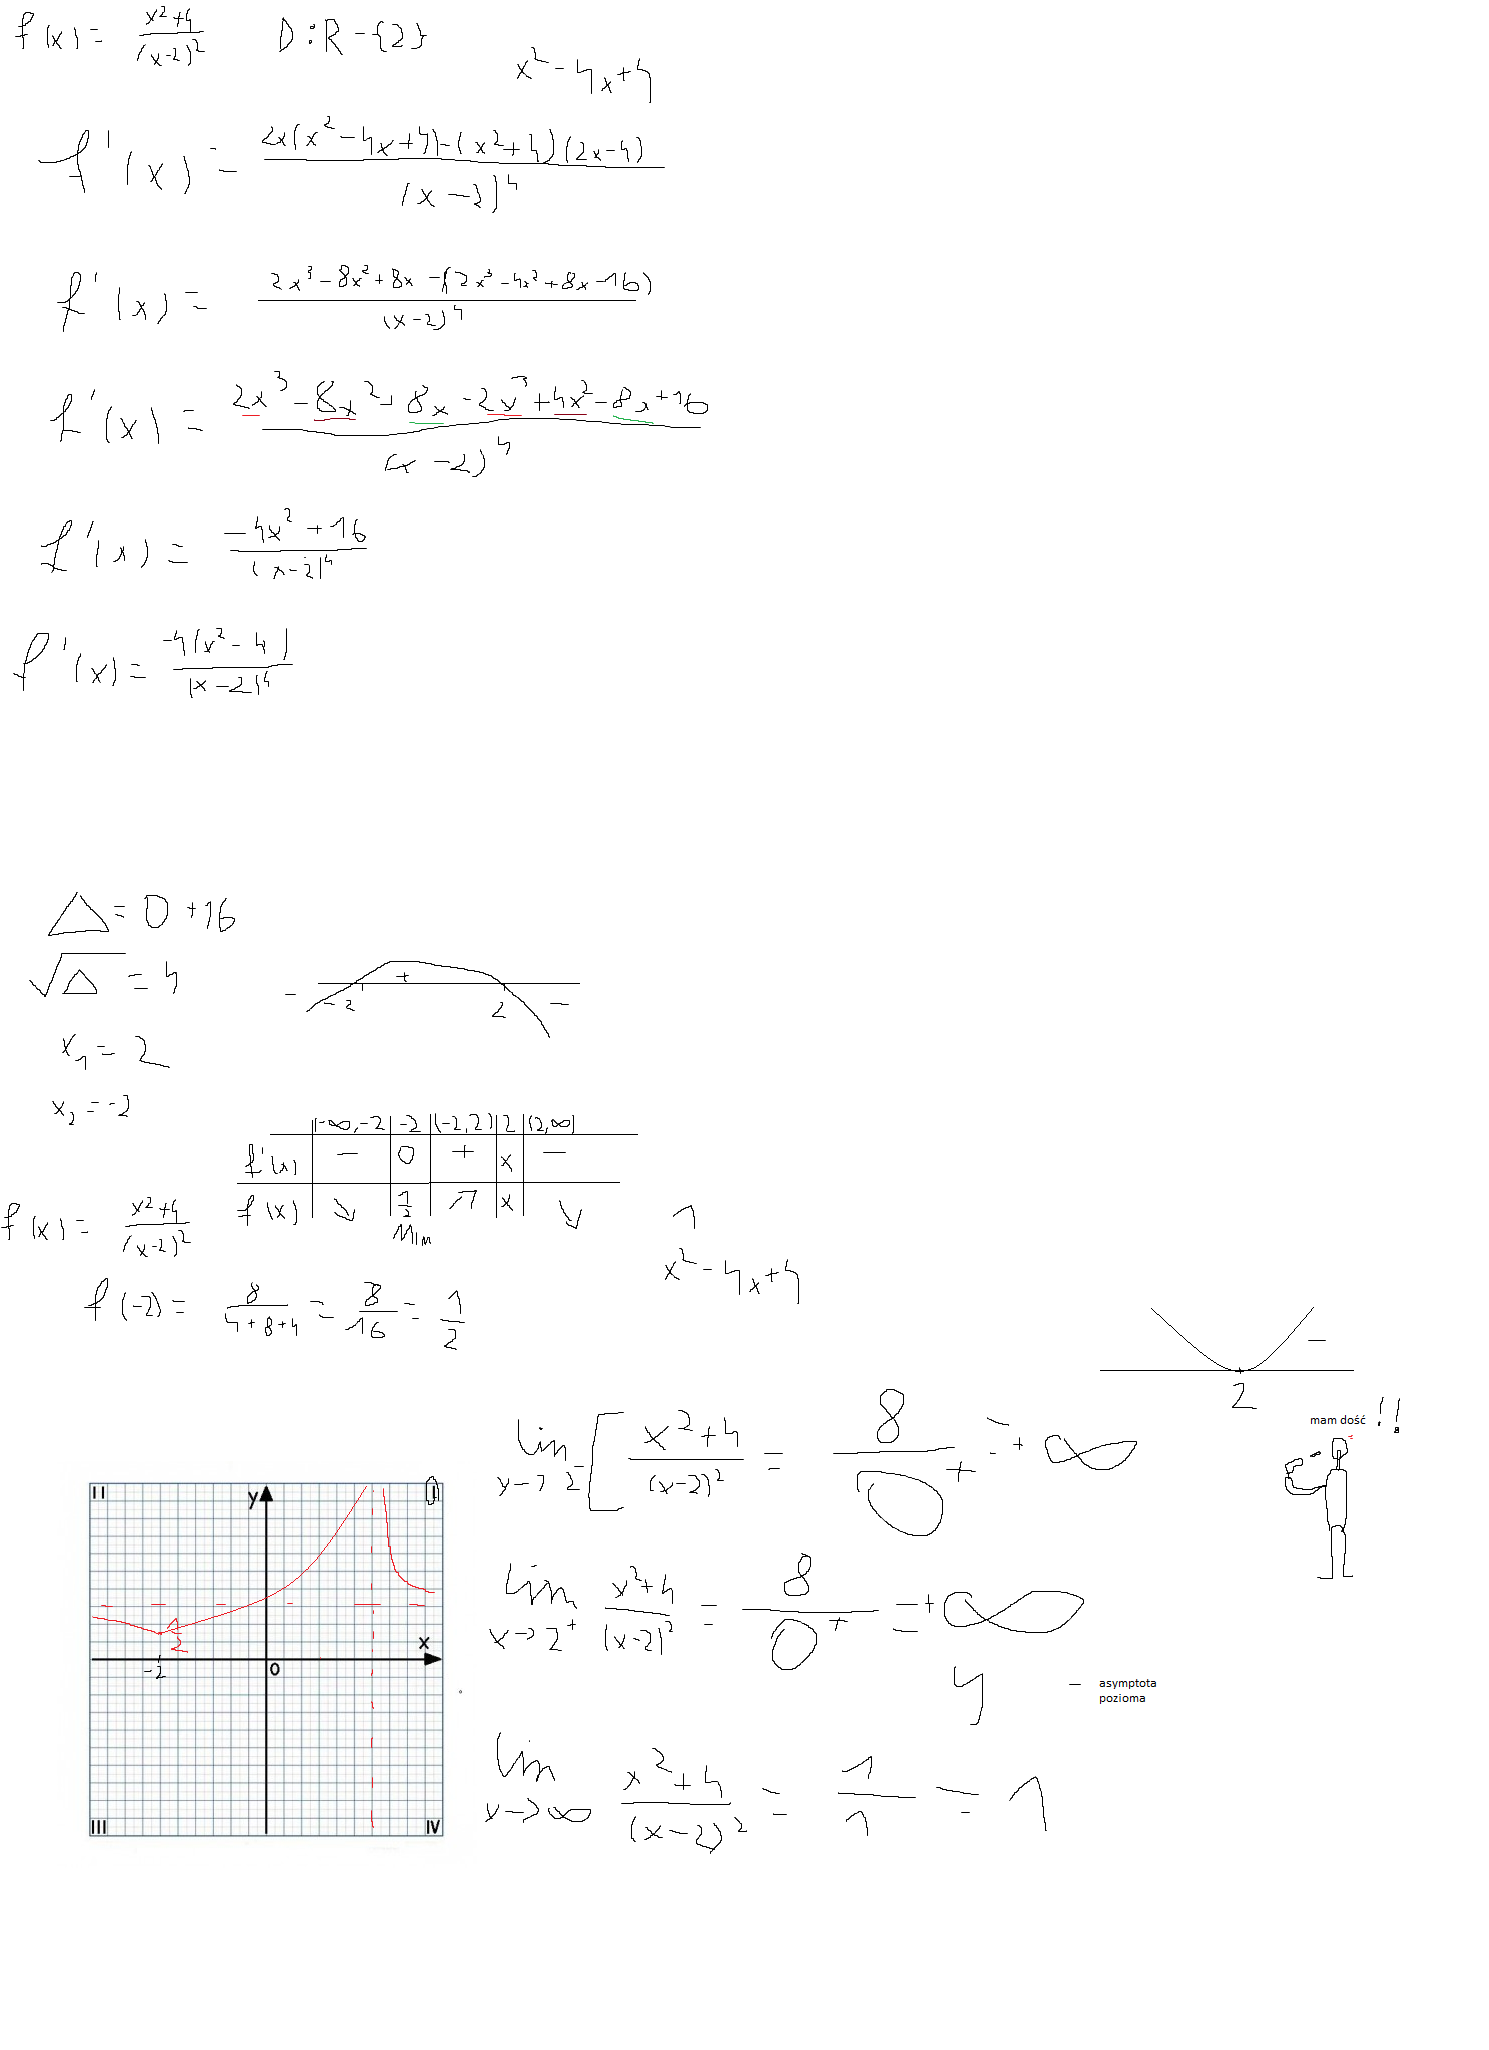 f(x) = (x²+4)/(x-2)² D:R-{2}
x²-4x+4
f'(x) = (2x(x²-4x+4)-(x²+4)(2x-4))/(x-2)⁴
f'(x) = (2x³-8x²+8x-(2x³-4x²+8x-16))/(x-2)⁴
f'(x) = (2x³-8x²+8x-2x³+4x²-8x+16)/(x-2)⁴
f'(x) = (-4x²+16)/(x-2)⁴
f'(x) = (-4(x²-4))/(x-2)⁴
△ = 0+16
√△ = 4
- -2 + 2 -
x₁ = 2
x₂ = -2
(-∞,-2 | -2 | (-2,2) | 2 | (2,∞)
f'(x) | - | 0 | + | x | -
f(x) | ↘ | 1/2 | ↗ | x | ↘
MIN
f(x) = (x²+4)/(x-2)²
1
x²-4x+4
f(-2) = 8/(4+8+4) = 8/16 = 1/2
-
2
lim x→2⁻ [ (x²+4)/(x-2)² = 8/0⁺ = +∞
mam dość !!
II y I
1/2
x
-2 0
III IV
lim x→2⁺ (x²+4)/(x-2)² = 8/0⁺ = +∞
y
- asymptota
pozioma
lim x→∞ (x²+4)/(x-2)² = 1/1 = 1